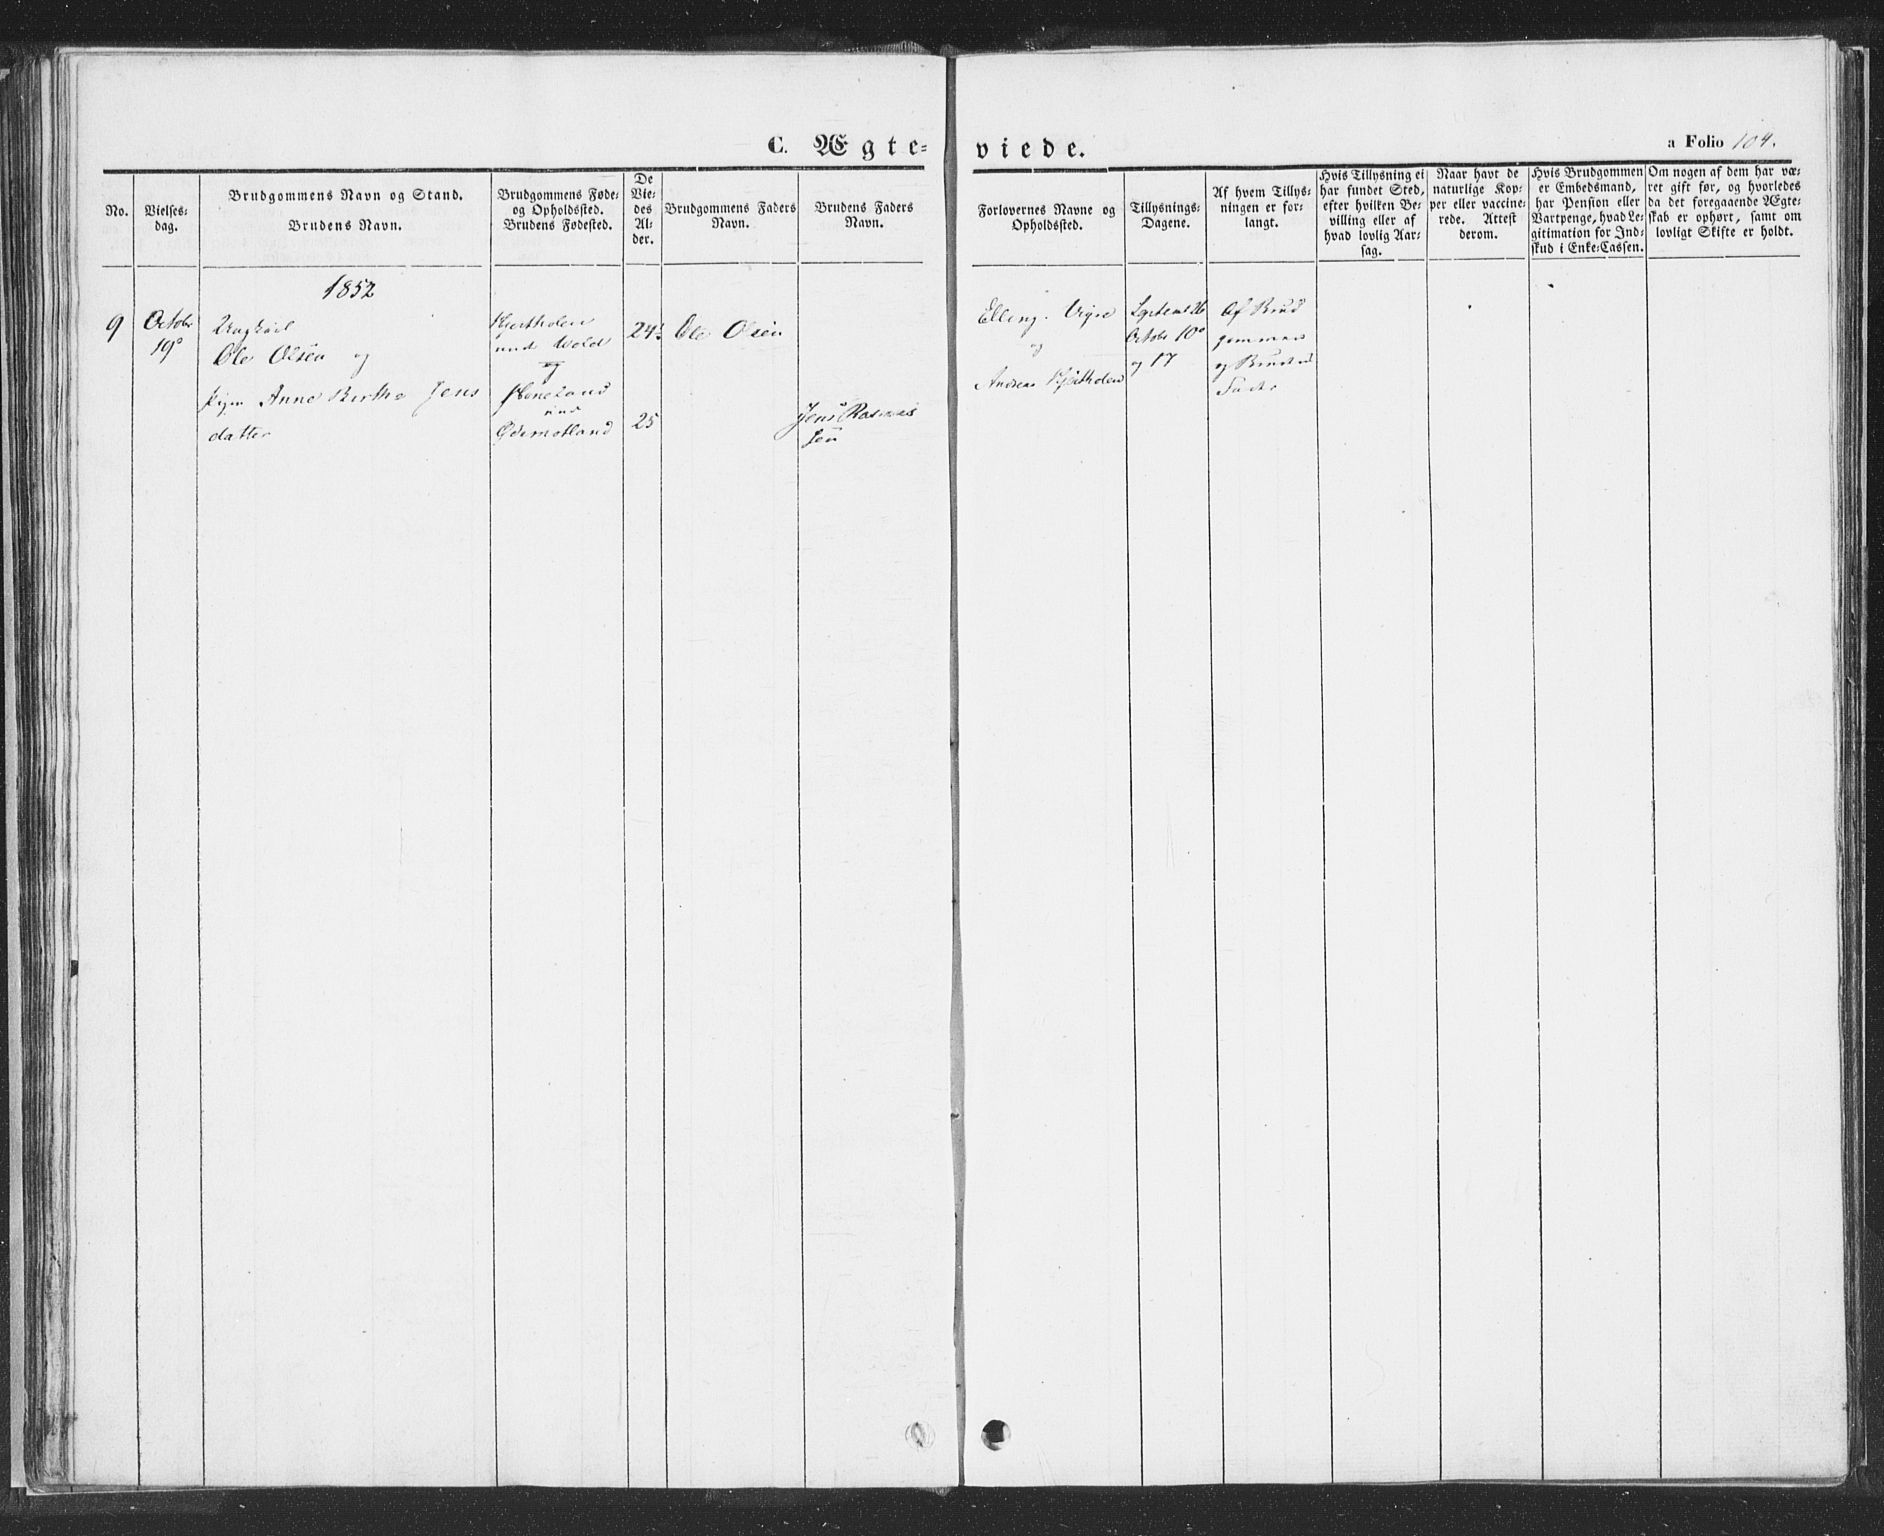 C. Ægte-
viede.
a Folio 104.
No.
Vielses-
dag.
Brudgommens Navn og Stand.
Brudens Navn.
Brudgommens Føde-
og Opholdssted.
Brudens Fødested.
De
Vie-
des
Al-
der.
Brudgommens Faders
Navn.
Brudens Faders
Navn.
Forlovernes Navne og
Opholdssted.
Tillysnings-
Dagene.
Af hvem Tillys-
ningen er for-
langt.
Hvis Tillysning ei
har fundet Sted,
efter hvilken Be-
villing eller af
hvad lovlig Aar-
sag.
Naar havt de
naturlige Kop-
per eller vaccine-
rede. Attest
derom.
Hvis Brudgommen
er Embedsmand,
har Pension eller
Vartpenge, hvad Le-
gitimation for Ind-
skud i Enke-Cassen.
Om nogen af dem har væ-
ret gift før, og hvorledes
da det foregaaende Ægte-
skab er ophørt, samt om
lovligt Skifte er holdt.
1852
9
Octobr
19
Ungkarl
Ole Olsen og
Pigen Anne Berthe Jens
datter
Kjertholen
und Wold
og
Høneland
und
Ødemotland
24½
25
Ole Olsen
Jens Rasmus
sen
Elling Vigre
og
Andreas Kjertholen
Septemb 26
Octobr 10
og 17
Af Brud
gommen
og Brudens
Fader